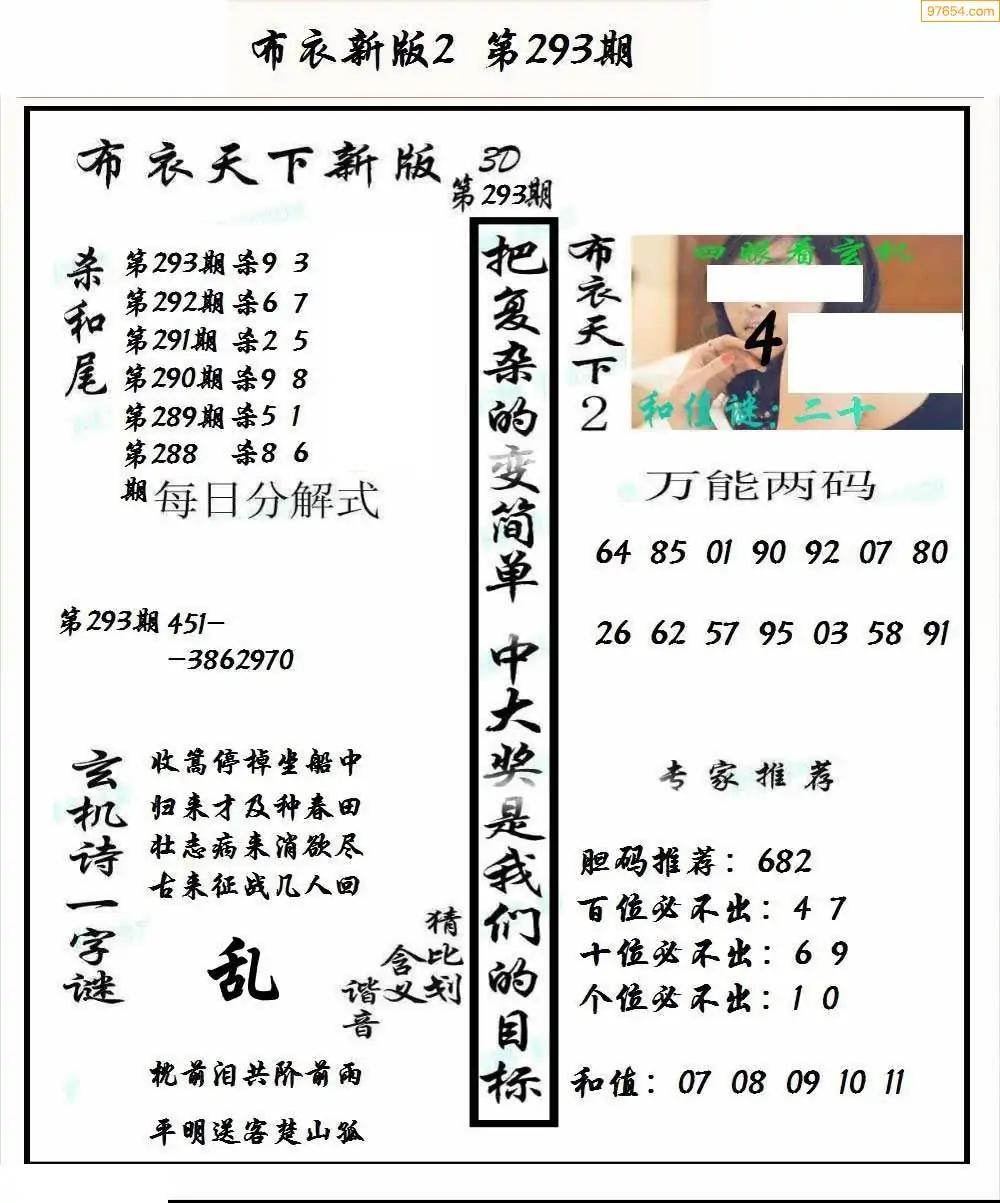 97654.com
布衣新版2 第293期
布衣天下新版
3D
第293期
杀和尾
第293期 杀9 3
第292期 杀6 7
第291期 杀2 5
第290期 杀9 8
第289期 杀5 1
第288期 杀8 6
每日分解式
第293期 451-
-3862970
玄机诗一字谜
收篙停掉坐船中
归来才及种春田
壮志病来消欲尽
古来征战几人回
乱
猜比划
含义
谐音
枕前泪共阶前雨
平明送客楚山孤
把复杂的变简单 中大奖是我们的目标
布衣天下2
四眼看玄机
4
和值谜:二十
万能两码
64 85 01 90 92 07 80
26 62 57 95 03 58 91
专家推荐
胆码推荐：682
百位必不出：4 7
十位必不出：6 9
个位必不出：1 0
和值：07 08 09 10 11